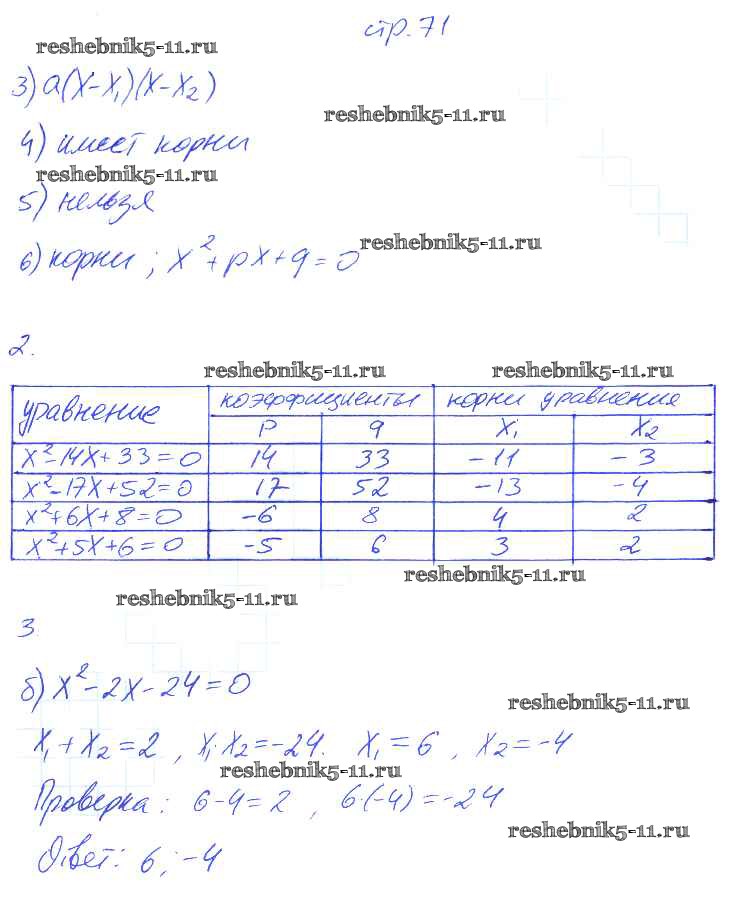 стр. 71
reshebnik5-11.ru
3) a(x-x₁)(x-x₂)
reshebnik5-11.ru
4) имеет корни
reshebnik5-11.ru
5) нельзя
6) корни ; x²+px+q=0
reshebnik5-11.ru
2.
reshebnik5-11.ru reshebnik5-11.ru
уравнение коэффициенты корни уравнения
p q x₁ x₂
x²-14x+33=0 14 33 -11 -3
x²-17x+52=0 17 52 -13 -4
x²+6x+8=0 -6 8 4 2
x²+5x+6=0 -5 6 3 2
reshebnik5-11.ru
reshebnik5-11.ru
3.
б) x²-2x-24=0
reshebnik5-11.ru
x₁+x₂=2, x₁·x₂=-24. x₁=6, x₂=-4
reshebnik5-11.ru
Проверка: 6-4=2, 6·(-4)=-24
reshebnik5-11.ru
Ответ: 6; -4